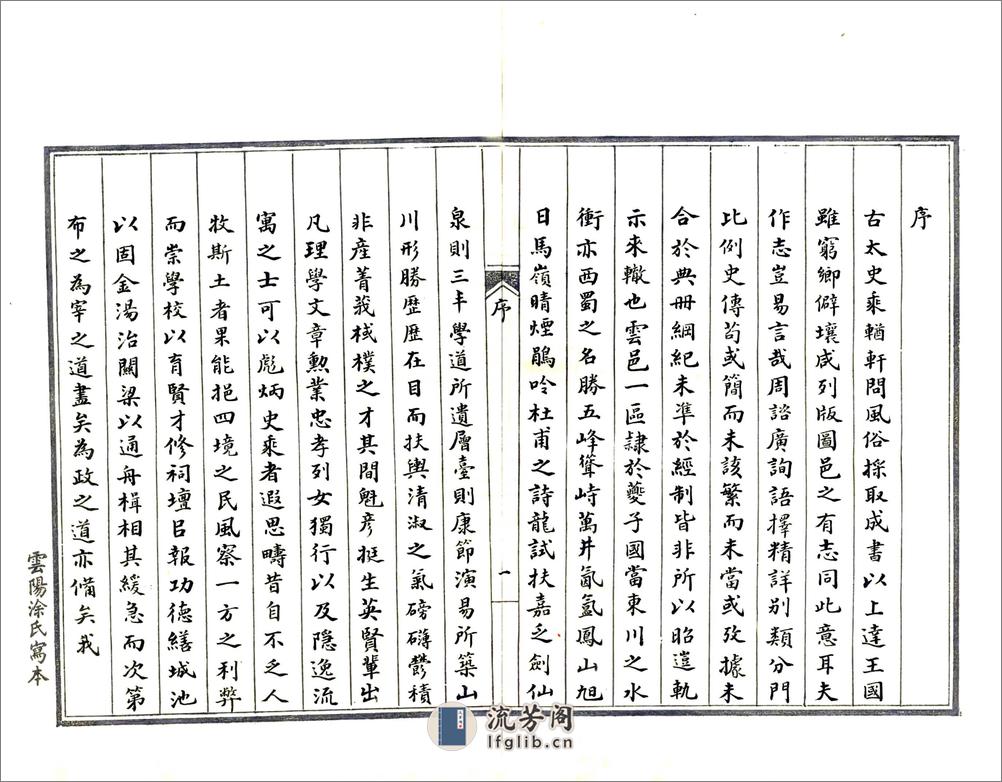 序
古太史乘輶軒問風俗採取成書以上達王國
雖窮鄉僻壤咸列版圖邑之有志同此意耳夫
作志豈易言哉周諮廣詢語擇精詳别類分門
比例史傳苟或簡而未該繁而未當或攷據未
合於典冊綱紀未準於經制皆非所以昭遵軌
示來轍也雲邑一區隷於夔子國當東川之水
衝亦西蜀之名勝五峰聳峙萬井氤氳鳳山旭
日馬嶺晴煙鵑吟杜甫之詩龍試扶嘉之劍仙
序
一
泉則三丰學道所遺層臺則康節演易所築山
川形勝歷歷在目而扶輿清淑之氣磅礴欝積
非產菁莪棫樸之才其間魁彥挺生英賢輩出
凡理學文章勲業忠孝列女獨行以及隐逸流
寓之士可以彪炳史乘者遐思疇昔自不乏人
牧斯土者果能挹四境之民風察一方之利弊
而崇學校以育賢才修祠壇㠯報功德繕城池
以固金湯治關梁以通舟楫相其緩急而次第
布之為宰之道盡矣為政之道亦備矣我
雲陽涂氏寫本
流芳阁
lfglib.cn